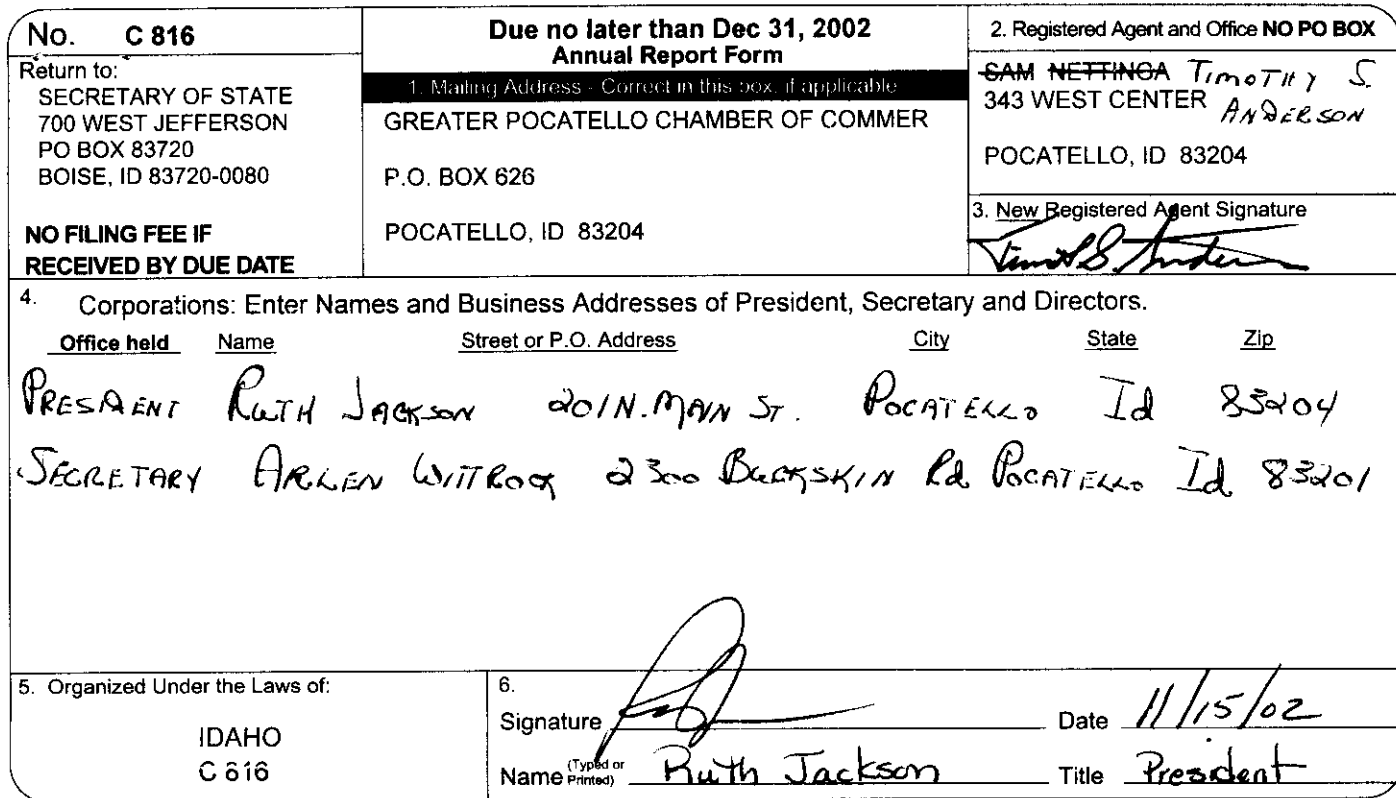 No. C 816
Return to:
SECRETARY OF STATE
700 WEST JEFFERSON
PO BOX 83720
BOISE, ID 83720-0080
NO FILING FEE IF
RECEIVED BY DUE DATE
Due no later than Dec 31, 2002
Annual Report Form
1. Mailing Address - Correct in this box, if applicable
GREATER POCATELLO CHAMBER OF COMMER
P.O. BOX 626
POCATELLO, ID 83204
2. Registered Agent and Office NO PO BOX
SAM NETTINGA TIMOTHY S.
343 WEST CENTER ANDERSON
POCATELLO, ID 83204
3. New Registered Agent Signature
4. Corporations: Enter Names and Business Addresses of President, Secretary and Directors.
Office held Name Street or P.O. Address City State Zip
PRESIDENT RUTH JACKSON 201 N. MAIN ST. POCATELLO Id 83204
SECRETARY ARLEN WITTROCK 2300 BUCKSKIN Rd POCATELLO Id 83201
5. Organized Under the Laws of:
IDAHO
C 816
6.
Signature Date 11/15/02
Name (Typed or Printed) Ruth Jackson Title President